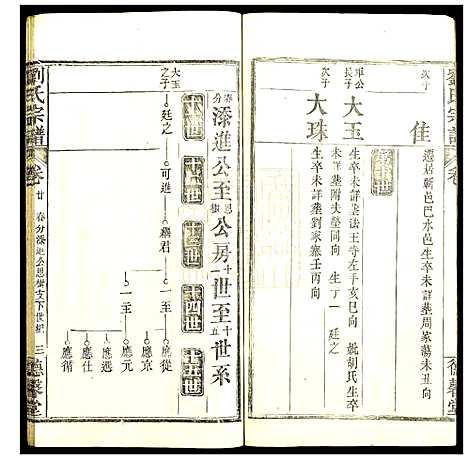 劉氏宗譜
卷
德馨堂
次子
佳
遷居蘄邑巴水邑生卒未詳葬周家蕩未丑向
長子
大玉
生卒未詳葬法王寺左手亥巳向 娶胡氏生卒
未詳葬附夫塋同向 生子一 廷之
次子
大珠
生卒未詳葬劉家寨壬丙向
春分
添進公至思樹公房十一世至十五世系
十一世
十二世
十三世
十四世
十五世
大玉之子
廷之
可進
一至
應從
應京
應元
一至
應選
應仕
應循
劉氏宗譜
卷
廿 春分添進公思樹支下世系
三
德馨堂